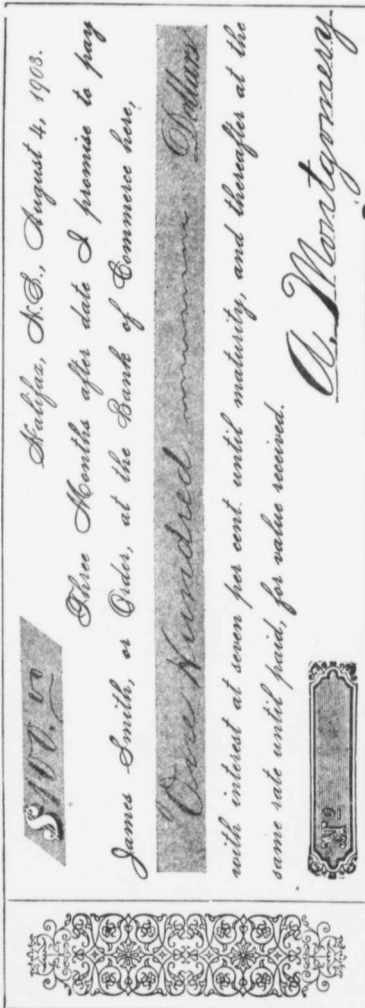 $100.00
Halifax, N.S., August 4, 1903.
Three Months after date I promise to pay
James Smith, or Order, at the Bank of Commerce here,
One Hundred Dollars
with interest at seven per cent. until maturity, and thereafter at the
same rate until paid, for value received.
No
A. Montgomery.